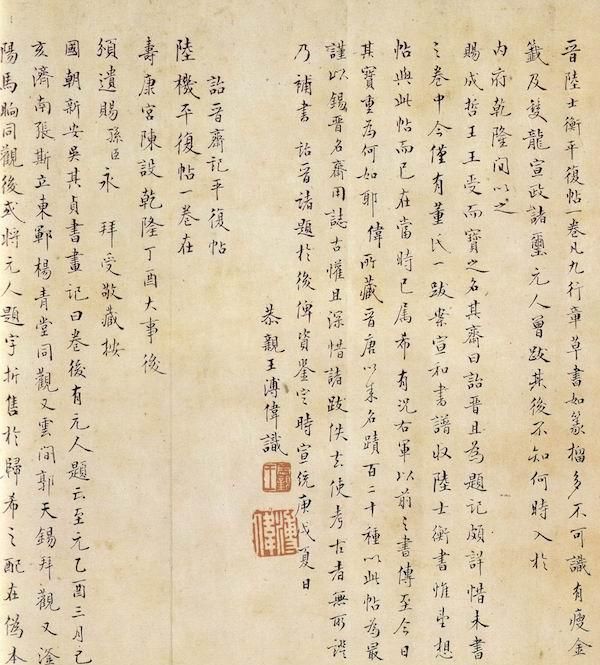 晉陸士衡平復帖一卷凡九行章草書如篆籀多不可識有瘦金
籤及雙龍宣政諸璽元人曾跋其後不知何時入於
内府乾隆間以之
賜成哲王王受而寶之名其齋曰詒晉且為題記頗詳惜未書
之卷中今僅有董氏一跋案宣和書譜收陸士衡書惟望想
帖與此帖而已在當時已属希有況右軍以前之書傳至今日
其寶重為何如耶偉所藏晉唐以来名蹟百二十種以此帖為最
謹以錫晉名齋用誌古懽且深惜諸跋佚去使考古者無所證
乃補書詒晉諸題於後俾資鑒定時宣統庚戌夏日
恭親王溥偉識
溥偉
詒晉齋記平復帖
陸機平復帖一卷在
壽康宮陳設乾隆丁酉大事後
頒遺賜孫臣永 拜受敬藏按
國朝新安吳其貞書畫記曰卷後有元人題云至元乙酉三月己
亥濟南張斯立東鄆楊青堂同觀又雲間郭天錫拜觀又滏
陽馬昫同觀後或將元人題字折售於歸希之配在偽本